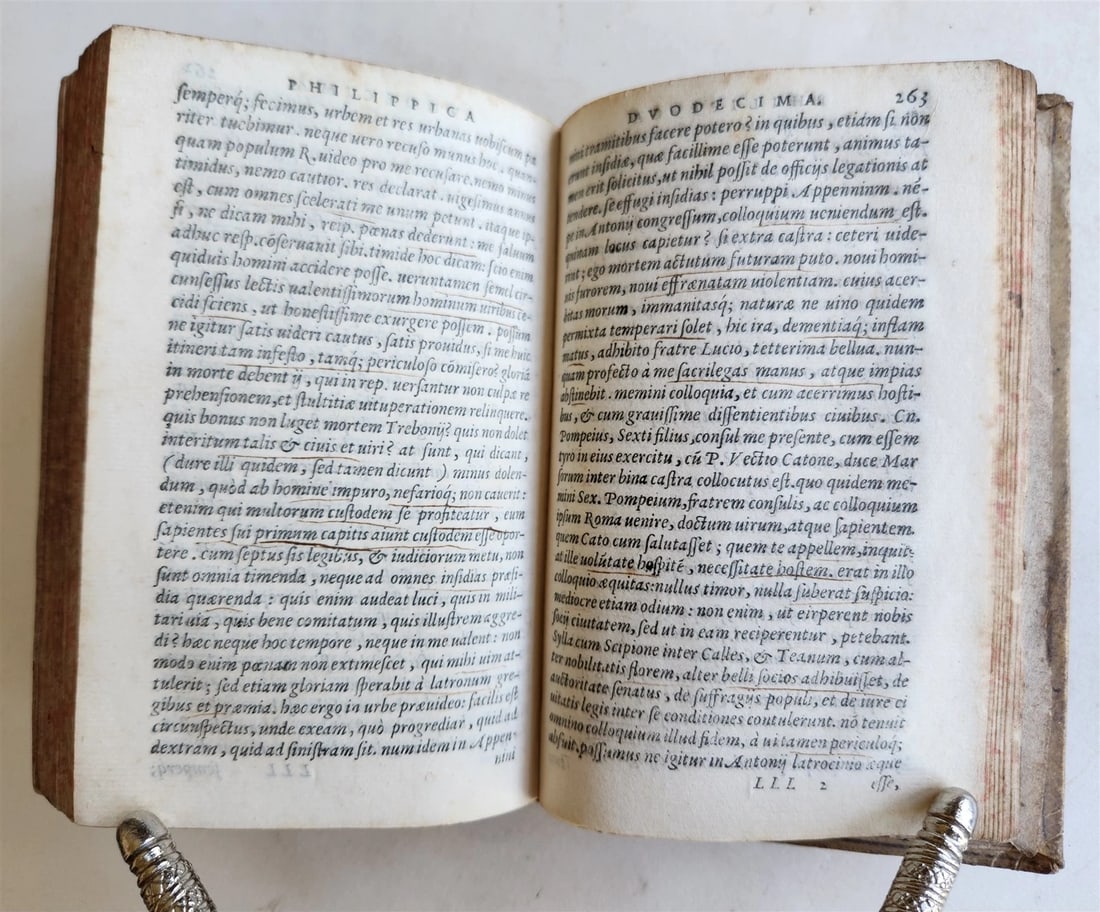 PHILIPPICA
semperq́; fecimus, urbem et res urbanas uobiscum pa
riter tuebimur. neque uero recuso munus hoc. quan-
quam populum R. uideo pro me recusare. nemo minus
timidus, nemo cautior. res declarat. uigesimus annus
est, cum omnes scelerati me unum petunt. itaque ip-
si, ne dicam mihi, reip. pœnas dederunt: me saluum
adhuc resp. cõseruauit sibi. timide hoc dicam: scio enim
quiduis homini accidere posse. ueruntamen semel cir-
cunsessus lectis ualentissimorum hominum uiribus ce-
cidi sciens, ut honestissime exurgere possem. possum
ne igitur satis uideri cautus, satis prouidus, si me huic
itineri tam infesto, tamq́; periculoso cõmisero? gloriã
in morte debent ij, qui in rep. uersantur non culpæ re
prehensionem, et stultitiæ uituperationem relinquere.
quis bonus non luget mortem Trebonij? quis non dolet
interitum talis & ciuis et uiri? at sunt, qui dicant,
(dure illi quidem, sed tamen dicunt) minus dolen-
dum, quòd ab homine impuro, nefarioq́; non cauerit:
etenim qui multorum custodem se profiteatur, eum
sapientes sui primum capitis aiunt custodem esse opor-
tere. cum septus sis legibus, & iudiciorum metu, non
sunt omnia timenda, neque ad omnes insidias præsi-
dia quærenda: quis enim audeat luci, quis in mili-
tari uia, quis bene comitatum, quis illustrem aggre-
di? hæc neque hoc tempore, neque in me ualent: non
modo enim pœnam non extimescet, qui mihi uim at-
tulerit; sed etiam gloriam sperabit à latronum gre-
gibus et præmia. hæc ergo in urbe præuideo: facilis est
circunspectus, unde exeam, quò progrediar, quid ad
dextram, quid ad sinistram sit. num idem in Appen-
nini
DVODECIMA. 263
nini tramitibus facere potero? in quibus, etiam si non
erunt insidiæ, quæ facillime esse poterunt, animus ta-
men erit solicitus, ut nihil possit de officijs legationis at
tendere. se effugi insidias: perruppi Appenninm. nẽ-
pe in Antonij congressum, colloquium ueniendum est.
quinam locus capietur? si extra castra: ceteri uide-
rint; ego mortem actutum futuram puto. noui homi-
nis furorem, noui effrænatam uiolentiam. cuius acer-
bitas morum, immanitasq́; naturæ ne uino quidem
permixta temperari solet, hic ira, dementiaq́; inflam
matus, adhibito fratre Lucio, tetterima bellua. nun-
quam profecto à me sacrilegas manus, atque impias
abstinebit. memini colloquia, et cum acerrimus hosti-
bus, & cum grauissime dissentientibus ciuibus. Cn.
Pompeius, Sexti filius, consul me presente, cum essem
tyro in eius exercitu, cũ P. Vectio Catone, duce Mar
sorum inter bina castra collocutus est. quo quidem me-
mini Sex. Pompeium, fratrem consulis, ac colloquium
ipsum Roma uenire, doctum uirum, atque sapientem.
quem Cato cum salutasset; quem te appellem, inquit:
at ille uolũtate hospitẽ, necessitate hostem. erat in illo
colloquio æquitas: nullus timor, nulla suberat suspicio:
mediocre etiam odium: non enim, ut eirperent nobis
socij ciuitatem, sed ut in eam reciperentur, petebant.
Sylla cum Scipione inter Calles, & Teanum, cum al-
ter nobilitatis florem, alter belli socios adhibuisset, de
auctoritate senatus, de suffragijs populi, et de iure ci
uitatis legis inter se conditiones contulerunt. nõ tenuit
omnino colloquium illud fidem, à ui tamen periculoq́;
absuit. possumus ne igitur in Antonij latrocinio æque
LLL 2 esse,